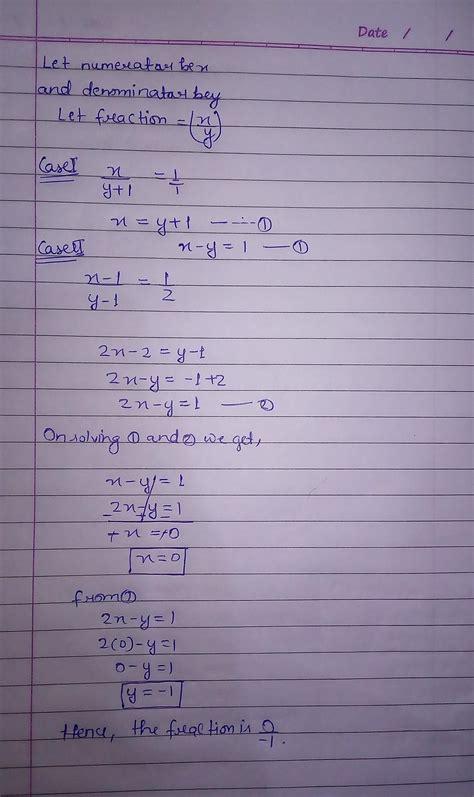 Date / /
Let numerator be x
and denominator be y
Let fraction = (x/y)
Case I x/y+1 = 1/1
x = y+1 ------ ①
x-y = 1 — ①
Case II
x-1/y-1 = 1/2
2x-2 = y-1
2x-y = -1+2
2x-y=1 — ②
On solving ① and ② we get,
x-y = 1
-2x-y=1
+x =+0
x=0
from ①
2x-y=1
2(0)-y=1
0-y=1
y=-1
Hence, the fraction is 0/-1.